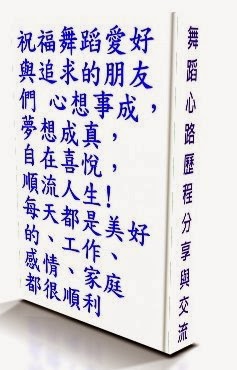 祝福舞蹈愛好
與追求的朋友
們 心想事成，
夢想成真，
自在喜悅，
順流人生！
每天都是美好
的、工作、
感情、家庭
都很順利
舞蹈心路歷程分享與交流